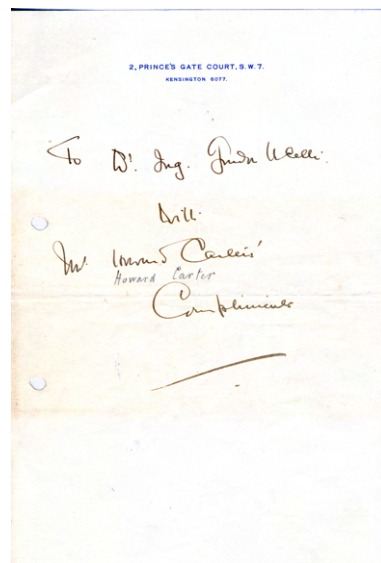 2, PRINCE'S GATE COURT, S.W.7.
KENSINGTON 6077.
To Dr. Ing. Guido Ucelli.
With
Mr. Howard Carter's
Howard Carter
Compliments